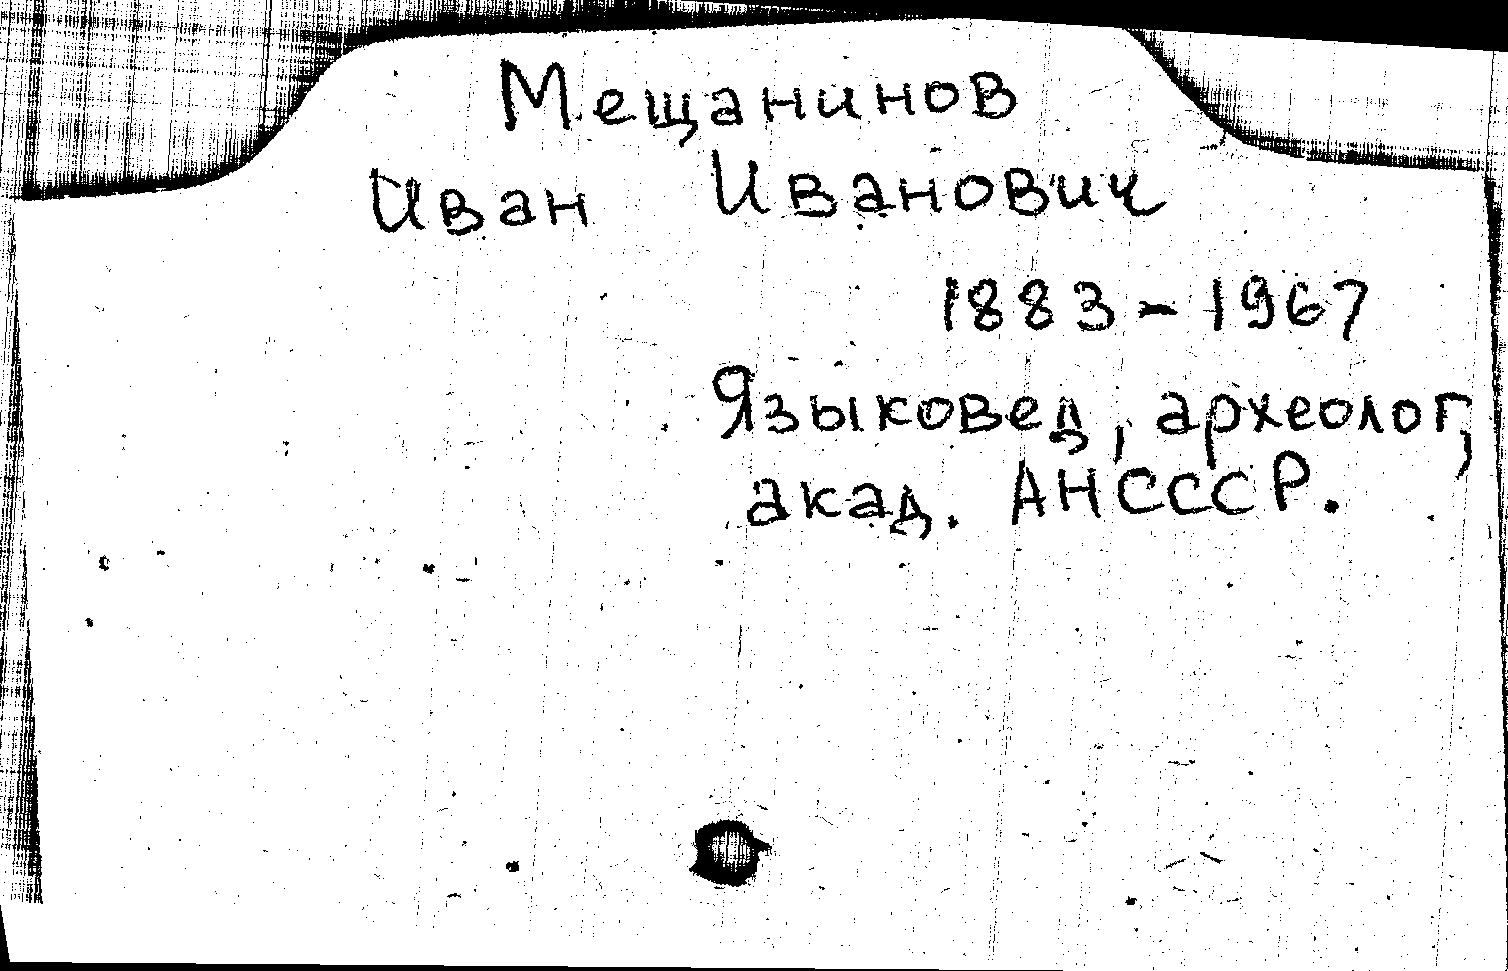 Мещанинов
Иван Иванович
1883-1967
Языковед, археолог,
акад. АНСССР.